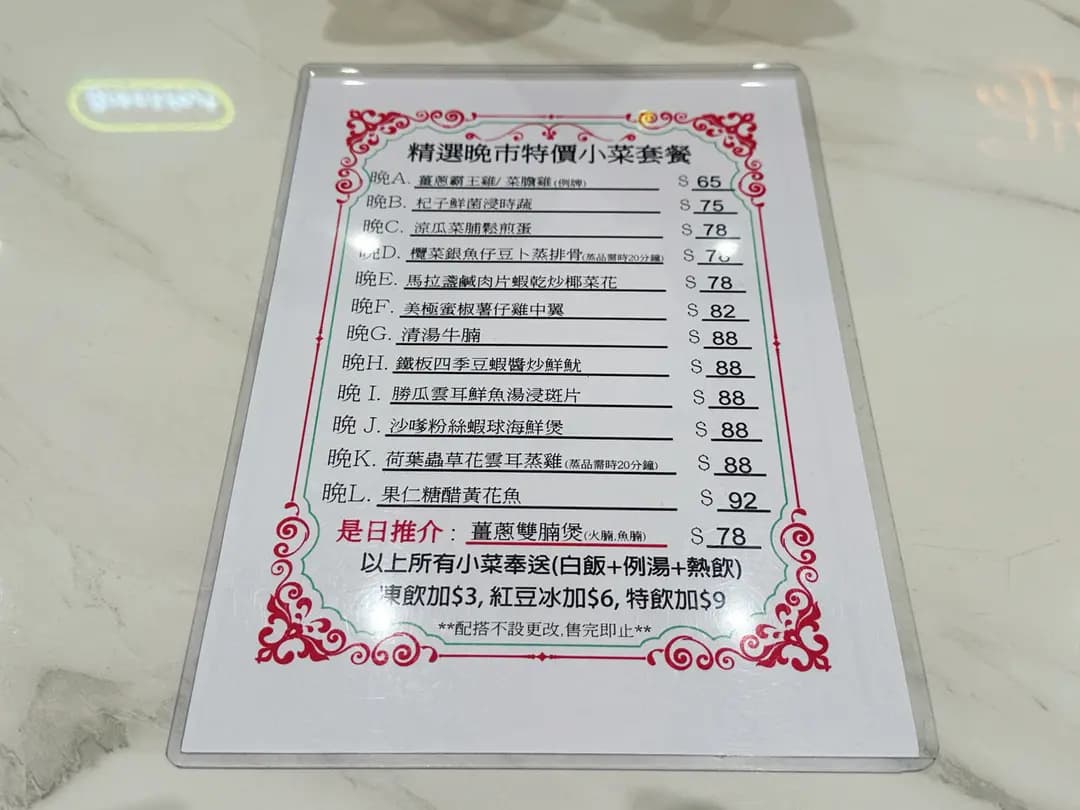 精選晚市特價小菜套餐
晚A. 薑蔥霸王雞/ 菜膽雞(例牌) $ 65
晚B. 杞子鮮菌浸時蔬 $ 75
晚C. 涼瓜菜脯鬆煎蛋 $ 78
晚D. 欖菜銀魚仔豆卜蒸排骨(蒸品需時20分鐘) $ 78
晚E. 馬拉盞鹹肉片蝦乾炒椰菜花 $ 78
晚F. 美極蜜椒薯仔雞中翼 $ 82
晚G. 清湯牛腩 $ 88
晚H. 鐵板四季豆蝦醬炒鮮魷 $ 88
晚 I. 勝瓜雲耳鮮魚湯浸斑片 $ 88
晚 J. 沙嗲粉絲蝦球海鮮煲 $ 88
晚K. 荷葉蟲草花雲耳蒸雞(蒸品需時20分鐘) $ 88
晚L. 果仁糖醋黃花魚 $ 92
是日推介 : 薑蔥雙腩煲(火腩,魚腩) $ 78
以上所有小菜奉送(白飯+例湯+熱飲)
凍飲加$3, 紅豆冰加$6, 特飲加$9
**配搭不設更改,售完即止**